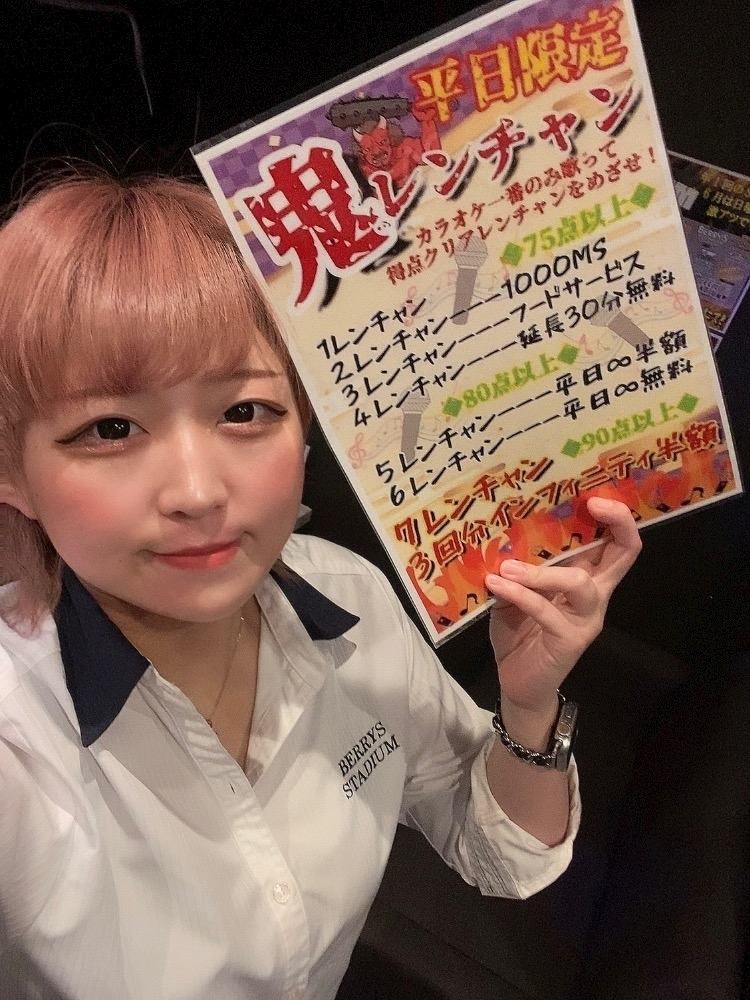 平日限定
鬼レンチャン
カラオケ一番のみ歌って
得点クリアレンチャンをめざせ!
◆75点以上◆
1レンチャン
2レンチャン---1000MS
3レンチャン---フードサービス
4レンチャン---延長30分無料
◆80点以上◆
5レンチャン---平日∞半額
6レンチャン---平日∞無料
◆90点以上◆
7レンチャン
3回分インフィニティ半額
BERRYS
STADIUM
6月は日